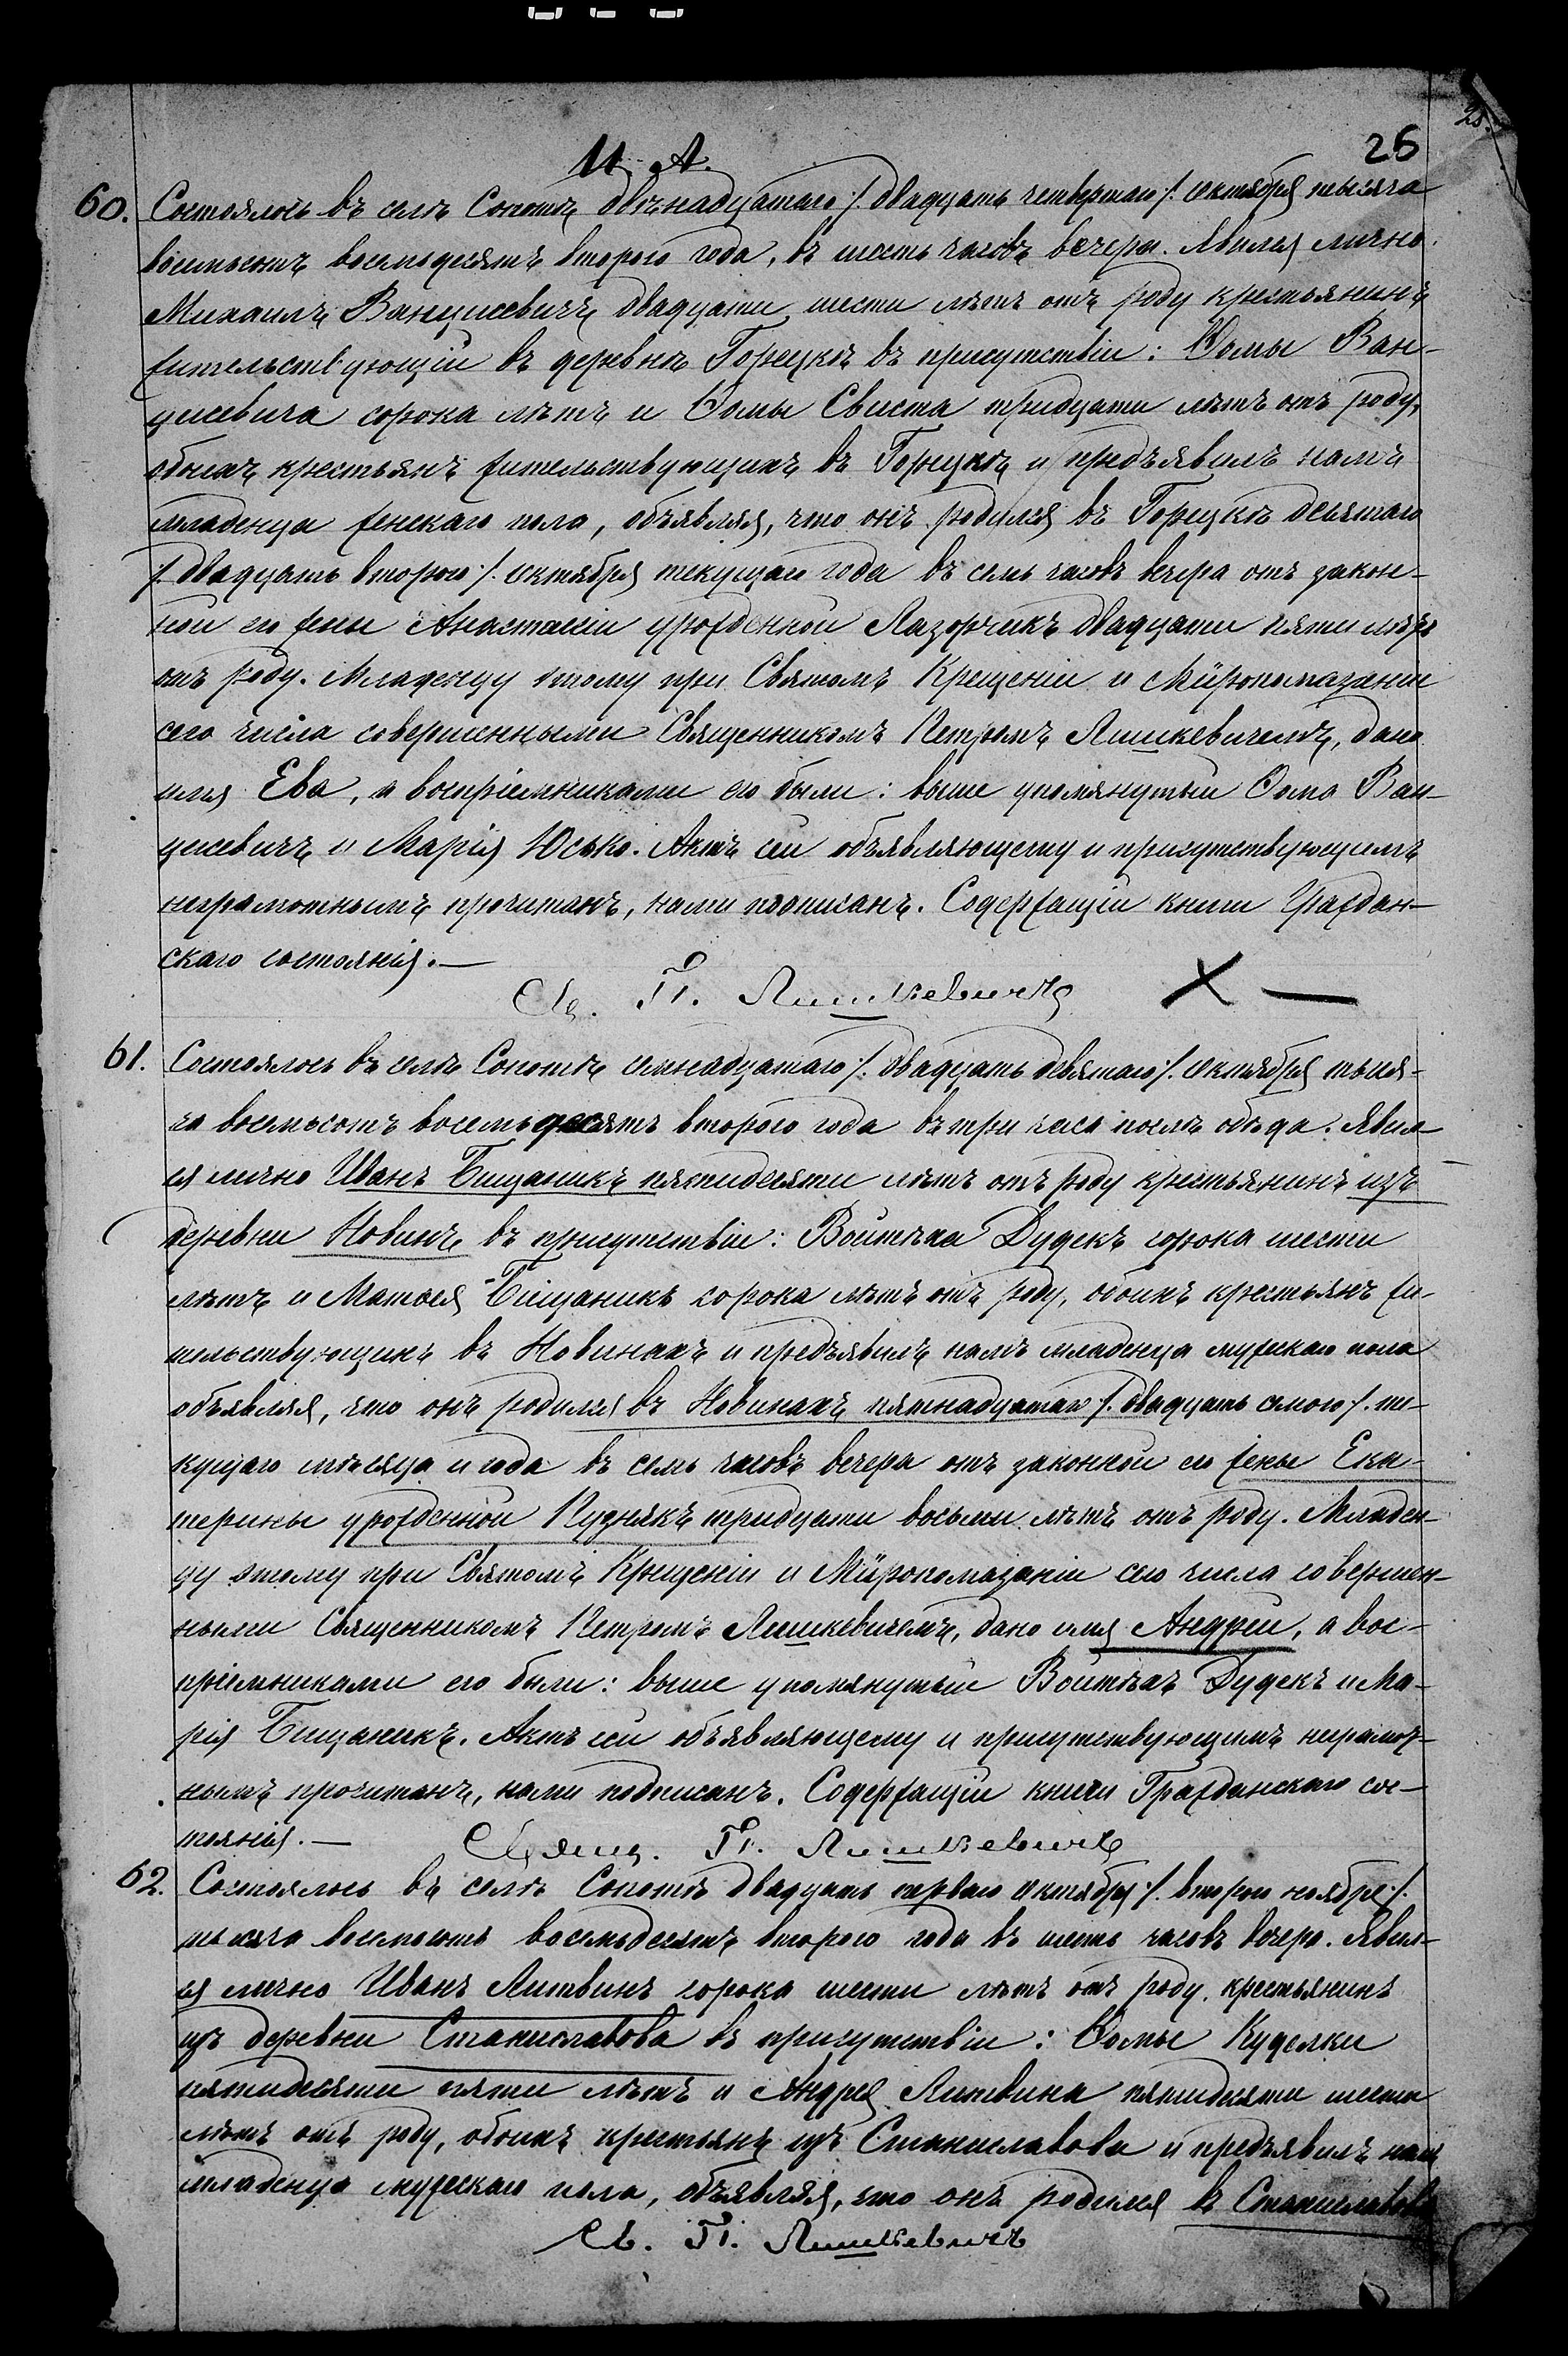 26
60. Состоялось въ селѣ Сопотѣ двѣнадцатаго /. двадцать четвертаго /. октября тысяча
восемьсотъ восемьдесятъ второго года, въ шесть часовъ вечера. Явился лично
Михаилъ Ванцисевичъ двадцати шести лѣтъ отъ роду крестьянинъ
жительствующій въ деревнѣ Горецкѣ въ присутствіи: Ѳомы Ван-
цисевича сорока лѣтъ и Ѳомы Свиста тридцати лѣтъ отъ роду,
обоихъ крестьянъ жительствующихъ въ Горецкѣ и предъявилъ намъ
младенца женскаго пола, объявляя, что онъ родился въ Горецкѣ десятаго
/. двадцать второго /. октября текущаго года въ семь часовъ вечера отъ закон-
ной его жены Анастасіи урожденной Лазорчикъ двадцати пяти лѣтъ
отъ роду. Младенцу этому при Святомъ Крещеніи и Мѵропомазаніи
сего числа совершенными Священникомъ Петромъ Лишкевичемъ, дано
имя Ева, а воспріемниками его были: выше упомянутый Ѳома Ван-
цисевичъ и Марія Юсько. Актъ сей объявляющему и присутствующимъ
неграмотнымъ прочитанъ, нами подписанъ. Содержащій книги Граждан-
скаго состоянія.—
Св. П. Лишкевичъ
61. Состоялось въ селѣ Сопотѣ семнадцатаго /. двадцать девятаго /. октября тыся-
ча восемьсотъ восемьдесятъ второго года въ три часа послѣ обѣда. Явил-
ся лично Иванъ Бицаникъ пятидесяти лѣтъ отъ роду крестьянинъ изъ
деревни Новинъ въ присутствіи: Войтѣха Дудекъ сорока шести
лѣтъ и Матѳея Бицаникъ сорока лѣтъ отъ роду, обоихъ крестьянъ жи-
тельствующихъ въ Новинахъ и предъявилъ намъ младенца мужескаго пола
объявляя, что онъ родился въ Новинахъ пятнадцатаго /. двадцать семого /. те-
кущаго мѣсяца и года въ семь часовъ вечера отъ законной его жены Ека-
терины урожденной Пуднякъ тридцати восьми лѣтъ отъ роду. Младен-
цу этому при Святомъ Крещеніи и Мѵропомазаніи сего числа совершен-
ными Священникомъ Петромъ Лишкевичемъ, дано имя Андрей, а вос-
пріемниками его были: выше упомянутый Войтѣхъ Дудекъ и Ма-
рія Бицаникъ. Актъ сей объявляющему и присутствующимъ неграмот-
нымъ прочитанъ, нами подписанъ. Содержащій книги Гражданскаго сос-
тоянія.— Свящ. П. Лишкевичъ
62. Состоялось въ селѣ Сопотѣ двадцать перваго октября /. второго ноября /.
тысяча восемьсотъ восемьдесятъ второго года въ шесть часовъ вечера. Явил-
ся лично Иванъ Литвинъ сорока шести лѣтъ отъ роду, крестьянинъ
изъ деревни Станиславова въ присутствіи: Ѳомы Куделки
пятидесяти пяти лѣтъ и Андрея Литвина пятидесяти шести
лѣтъ отъ роду, обоихъ крестьянъ изъ Станиславова и предъявилъ намъ
младенца мужескаго пола, объявляя, что онъ родился въ Станиславовѣ
Св. П. Лишкевичъ